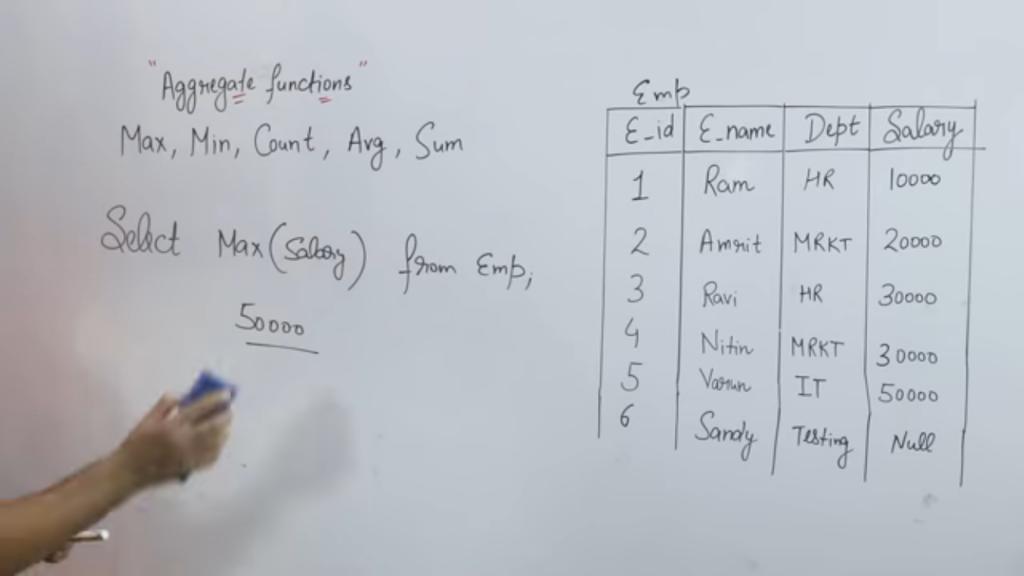 "Aggregate functions"
Max, Min, Count, Avg, Sum
Select Max(Salary) from Emp;
50000
Emp
E_id E_name Dept Salary
1 Ram HR 10000
2 Amrit MRKT 20000
3 Ravi HR 30000
4 Nitin MRKT 30000
5 Varun IT 50000
6 Sandy Testing Null